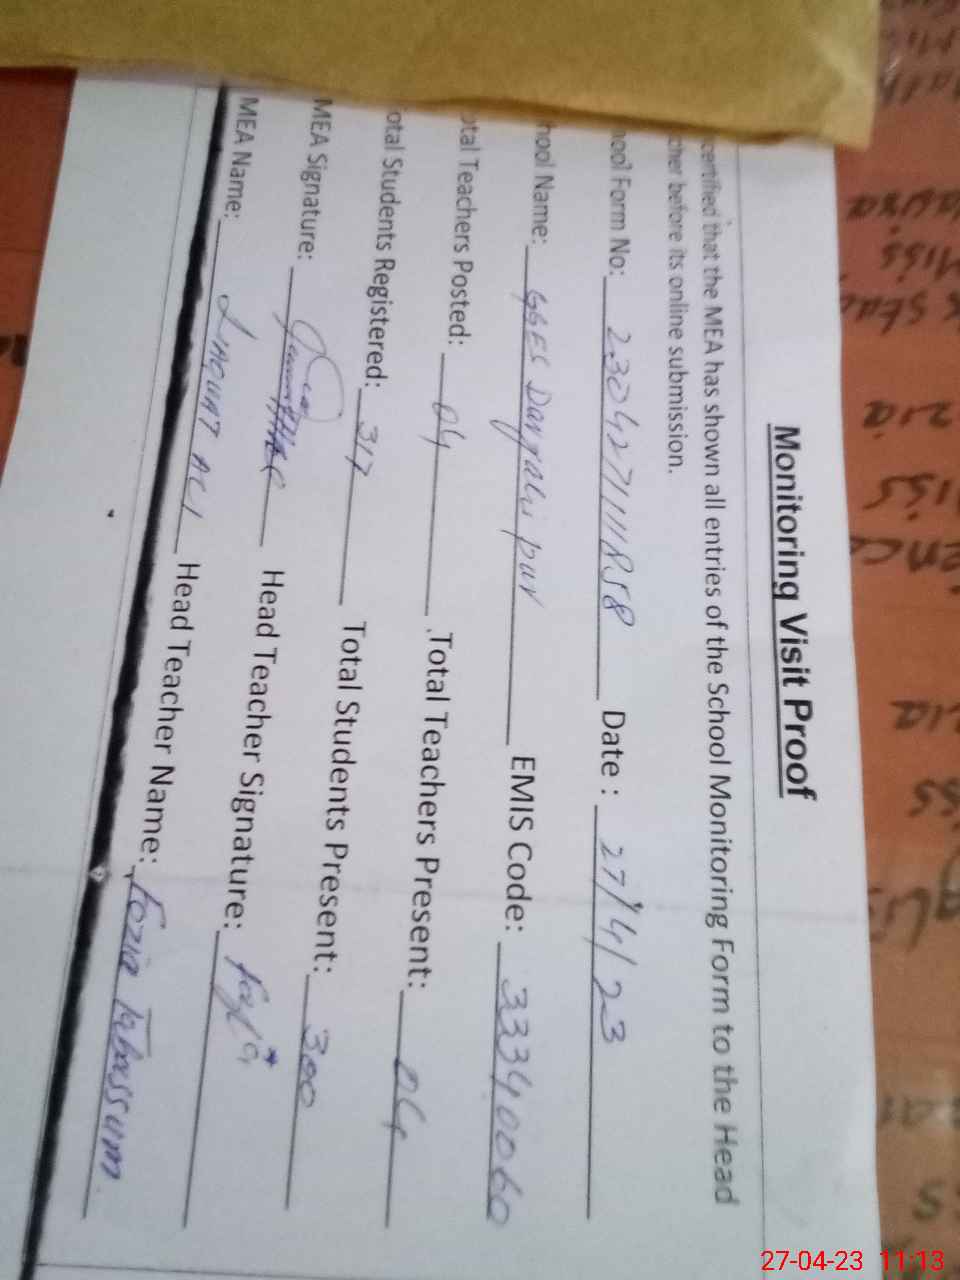 Monitoring Visit Proof
certified that the MEA has shown all entries of the School Monitoring Form to the Head
cher before its online submission.
hool Form No: 230427111858 Date : 27/4/23
hool Name: GGES Daryali pur EMIS Code: 33340060
otal Teachers Posted: 04 Total Teachers Present: 04
otal Students Registered: 317 Total Students Present: 300
MEA Signature: Head Teacher Signature:
MEA Name: LIAQUAT ALI Head Teacher Name: Fozia Tabassum.
27-04-23 11:13